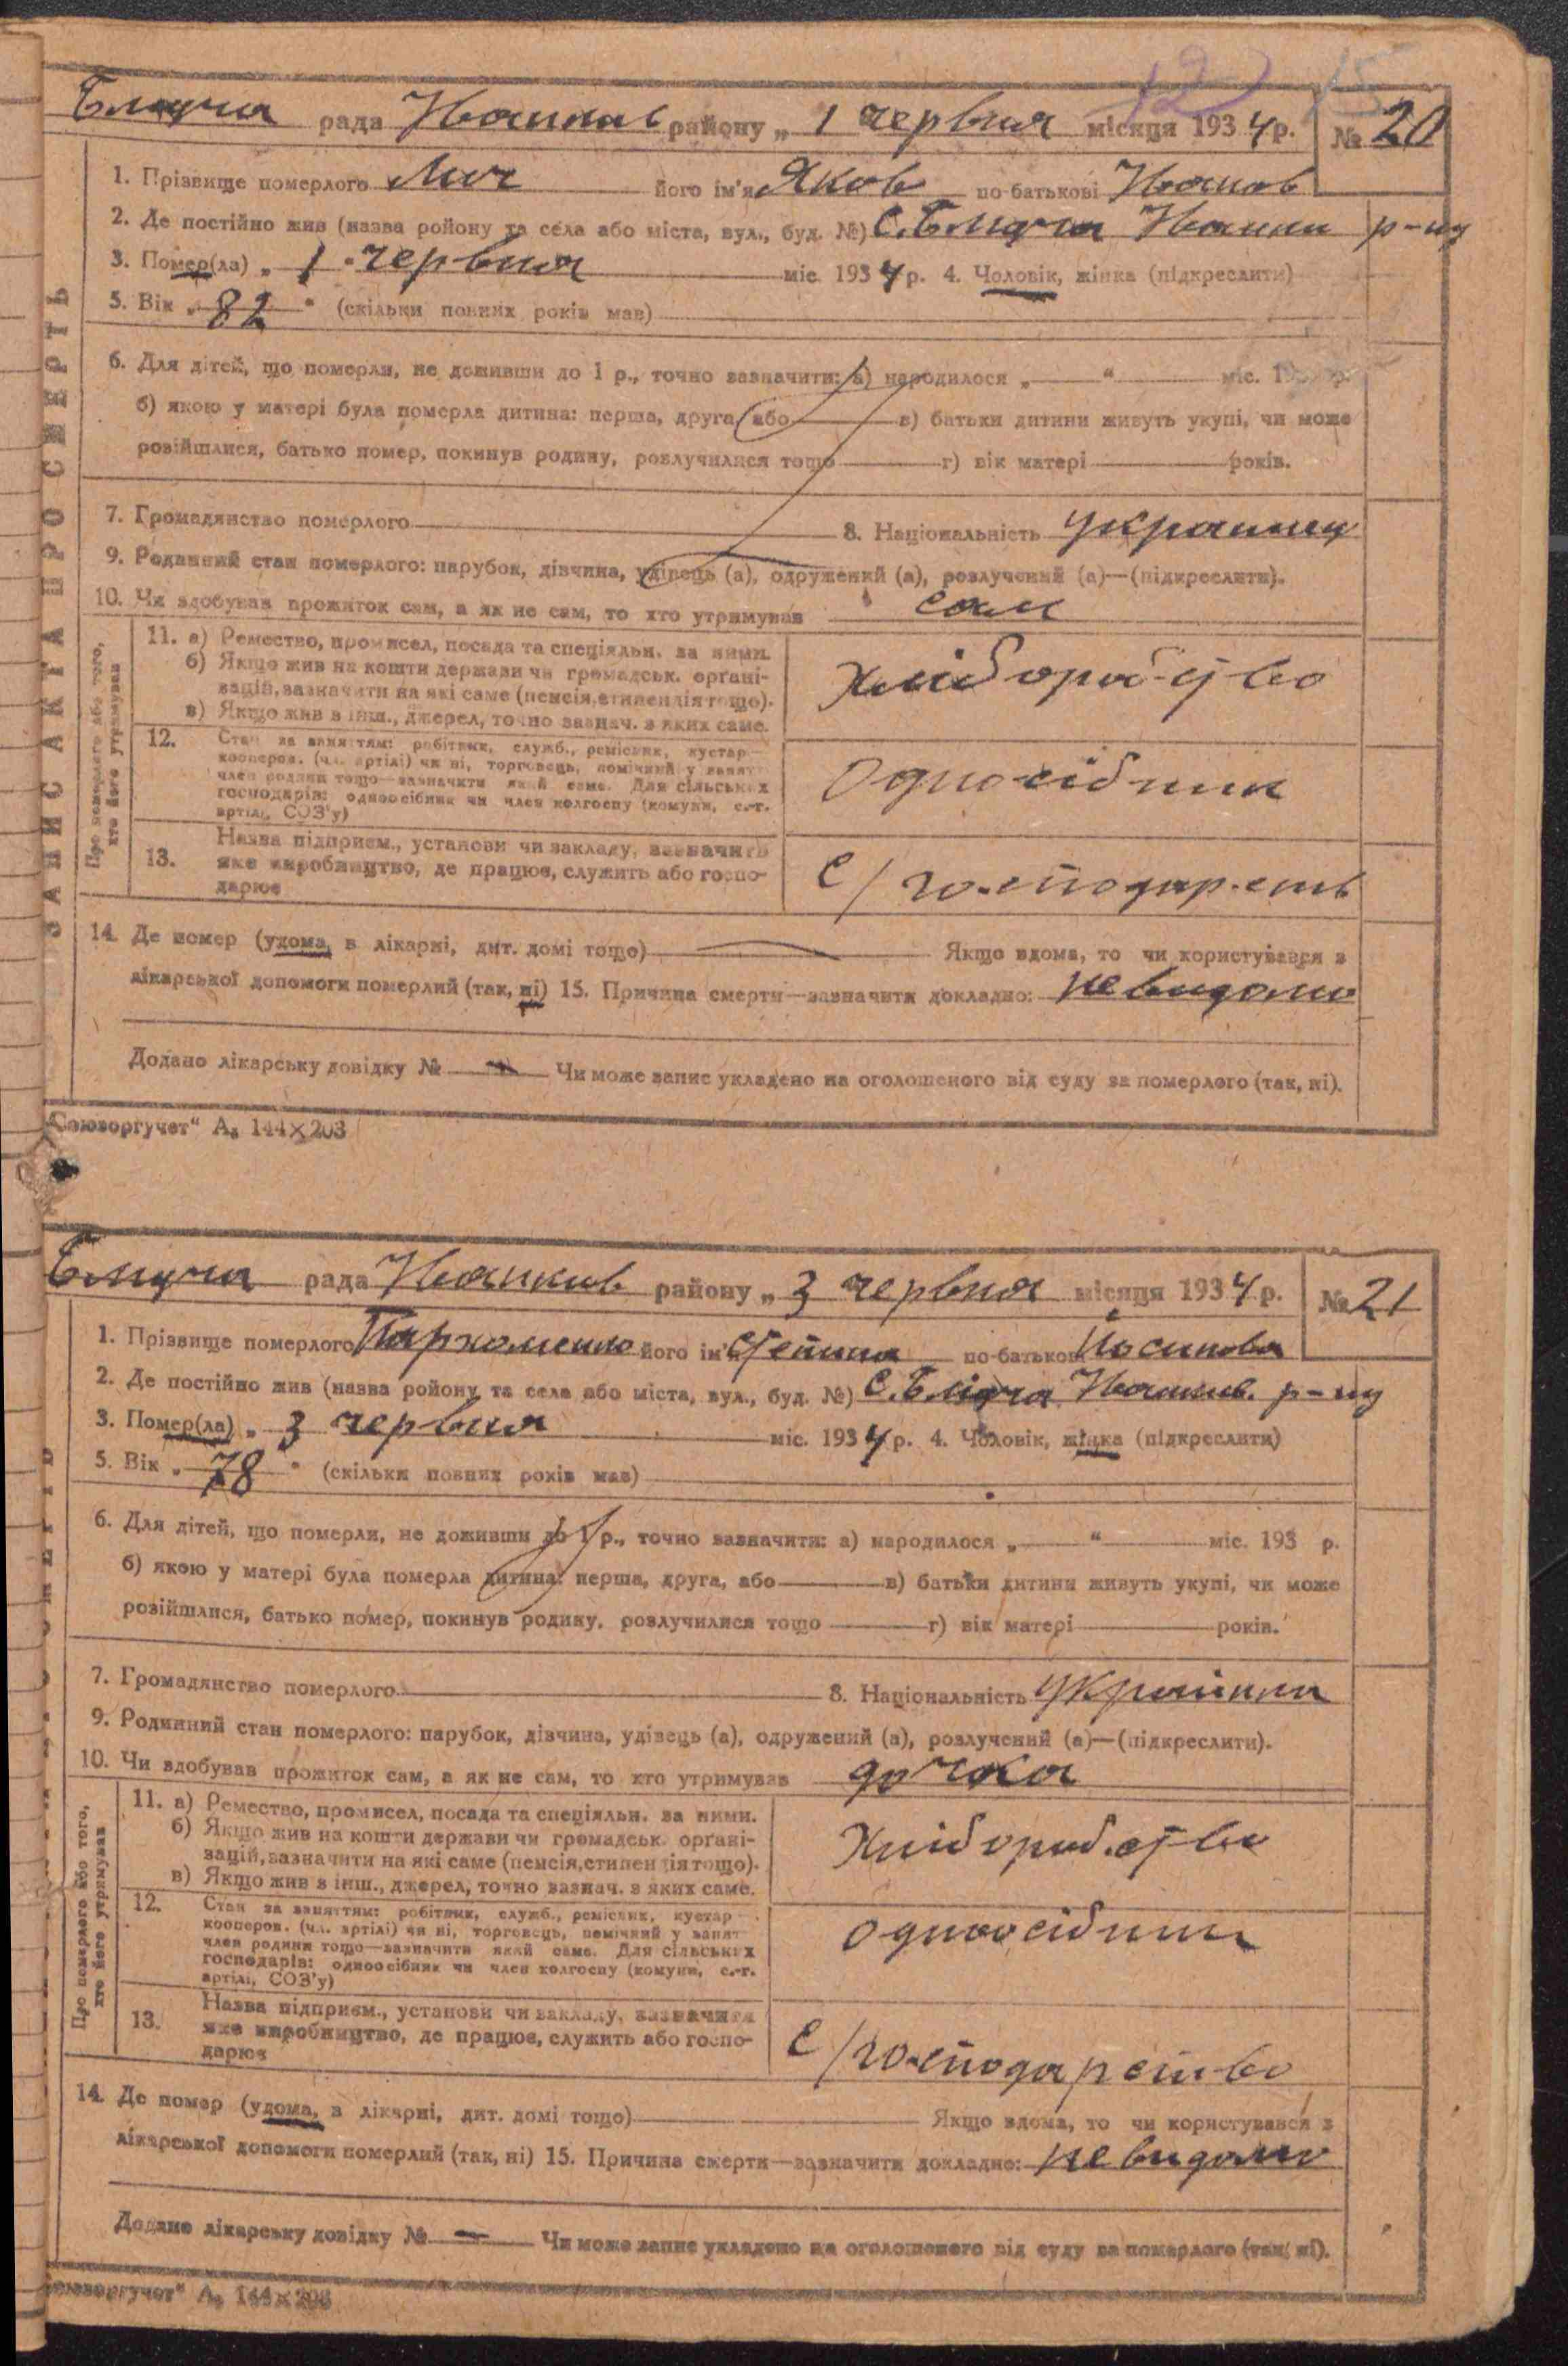 12 15
Блидча рада Иванков району „ 1 червня місяця 1934 р. № 20
1. Прізвище померлого Лич його ім'я Яков по-батькові Иванов
2. Де постійно жив (назва ройону та села або міста, вул., буд. №) С. Блидча Иванки р-ну
3. Помер(ла) „ 1 " червня міс. 1934 р. 4. Чоловік, жінка (підкреслити)
5. Вік „ 82 " (скільки повних років мав)
6. Для дітей, що померли, не доживши до 1 р., точно зазначити: а) народилося „ " міс. 193 р.
б) якою у матері була померла дитина: перша, друга, або в) батьки дитини живуть укупі, чи може
розійшлися, батько помер, покинув родину, розлучилися тощо г) вік матері років.
7. Громадянство померлого 8. Національність Украинец
9. Родинний стан померлого: парубок, дівчина, удівець (а), одружений (а), розлучений (а)—(підкреслити).
10. Чи здобував прожиток сам, а як не сам, то хто утримував сам
ЗАПИС АКТА ПРО СМЕРТЬ
Про померлого або того,
хто його утримував
11. а) Ремество, промисел, посада та спеціяльн. за ними.
б) Якщо жив на кошти держави чи громадськ. орґані-
зацій, зазначити на які саме (пенсія, стипендія тощо).
в) Якщо жив з інш., джерел, точно зазнач. з яких саме.
Хліборобство
12. Стан за заняттям: робітник, служб., ремісник, кустар—
кооперов. (чл. артілі) чи ні, торговець, помічний у занятт
член родини тощо—зазначити який саме. Для сільських
господарів: одноосібник чи член колгоспу (комуни, с.-г.
артілі, СОЗ'у)
Одноосібник
13. Назва підприєм., установи чи закладу, зазначить
яке виробництво, де працює, служить або госпо-
дарює
С/господарств
14. Де помер (удома, в лікарні, дит. домі тощо) Якщо вдома, то чи користувався з
лікарської допомоги померлий (так, ні) 15. Причина смерти—зазначити докладно: невидомо
Додано лікарську довідку № Чи може запис укладено на оголошеного від суду за померлого (так, ні).
Союзоргучет" А₅ 144×203
Блидча рада Иванков району „ 3 червня місяця 1934 р. № 21
1. Прізвище померлого Пархоменко його ім'я Степина по-батькові Йосипова
2. Де постійно жив (назва ройону та села або міста, вул., буд. №) С. Блідча Иванков. р-ну
3. Помер(ла) „ 3 червня міс. 1934 р. 4. Чоловік, жінка (підкреслити)
5. Вік „ 78 " (скільки повних років мав)
6. Для дітей, що померли, не доживши до 1 р., точно зазначити: а) народилося „ " міс. 193 р.
б) якою у матері була померла дитина: перша, друга, або в) батьки дитини живуть укупі, чи може
розійшлися, батько помер, покинув родину, розлучилися тощо г) вік матері років.
7. Громадянство померлого 8. Національність Українка
9. Родинний стан померлого: парубок, дівчина, удівець (а), одружений (а), розлучений (а)—(підкреслити).
10. Чи здобував прожиток сам, а як не сам, то хто утримував дочка
Про померлого або того,
хто його утримував
11. а) Ремество, промисел, посада та спеціяльн. за ними.
б) Якщо жив на кошти держави чи громадськ. орґані-
зацій, зазначити на які саме (пенсія, стипендія тощо).
в) Якщо жив з інш., джерел, точно зазнач. з яких саме.
Хліборобство
12. Стан за заняттям: робітник, служб., ремісник, кустар—
кооперов. (чл. артілі) чи ні, торговець, помічний у занят
член родини тощо—зазначити який саме. Для сільських
господарів: одноосібник чи член колгоспу (комуни, с.-г.
артілі, СОЗ'у)
Одноосібник
13. Назва підприєм., установи чи закладу, зазначити
яке виробництво, де працює, служить або госпо-
дарює
С/господарство
14. Де помер (удома, в лікарні, дит. домі тощо) Якщо вдома, то чи користувався з
лікарської допомоги померлий (так, ні) 15. Причина смерти—зазначити докладно: невидомо
Додано лікарську довідку № Чи може запис укладено на оголошеного від суду за померлого (так, ні).
Союзоргучет" А₅ 144×203